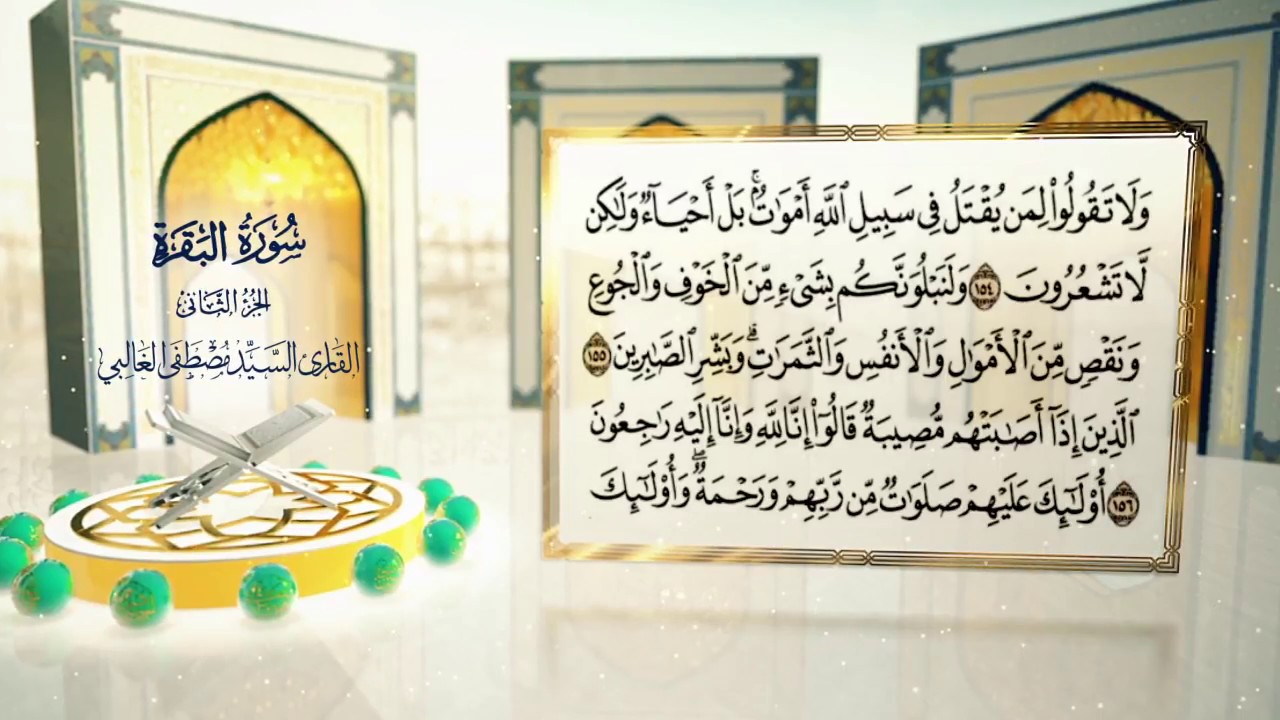 سُورَةُ البَقَرَةِ
الجُزءُ الثَّانِي
القَارِئ السَّيِّد مُصْطَفَى الغَالِبِي
وَلَا تَقُولُوا۟ لِمَن يُقْتَلُ فِى سَبِيلِ ٱللَّهِ أَمْوَٰتٌۢ ۚ بَلْ أَحْيَآءٌ وَلَٰكِن
لَّا تَشْعُرُونَ ١٥٤ وَلَنَبْلُوَنَّكُم بِشَىْءٍ مِّنَ ٱلْخَوْفِ وَٱلْجُوعِ
وَنَقْصٍ مِّنَ ٱلْأَمْوَٰلِ وَٱلْأَنفُسِ وَٱلثَّمَرَٰتِ ۗ وَبَشِّرِ ٱلصَّٰبِرِينَ ١٥٥
ٱلَّذِينَ إِذَآ أَصَٰبَتْهُم مُّصِيبَةٌ قَالُوٓا۟ إِنَّا لِلَّهِ وَإِنَّآ إِلَيْهِ رَٰجِعُونَ
١٥٦ أُو۟لَٰٓئِكَ عَلَيْهِمْ صَلَوَٰتٌ مِّن رَّبِّهِمْ وَرَحْمَةٌ ۖ وَأُو۟لَٰٓئِكَ